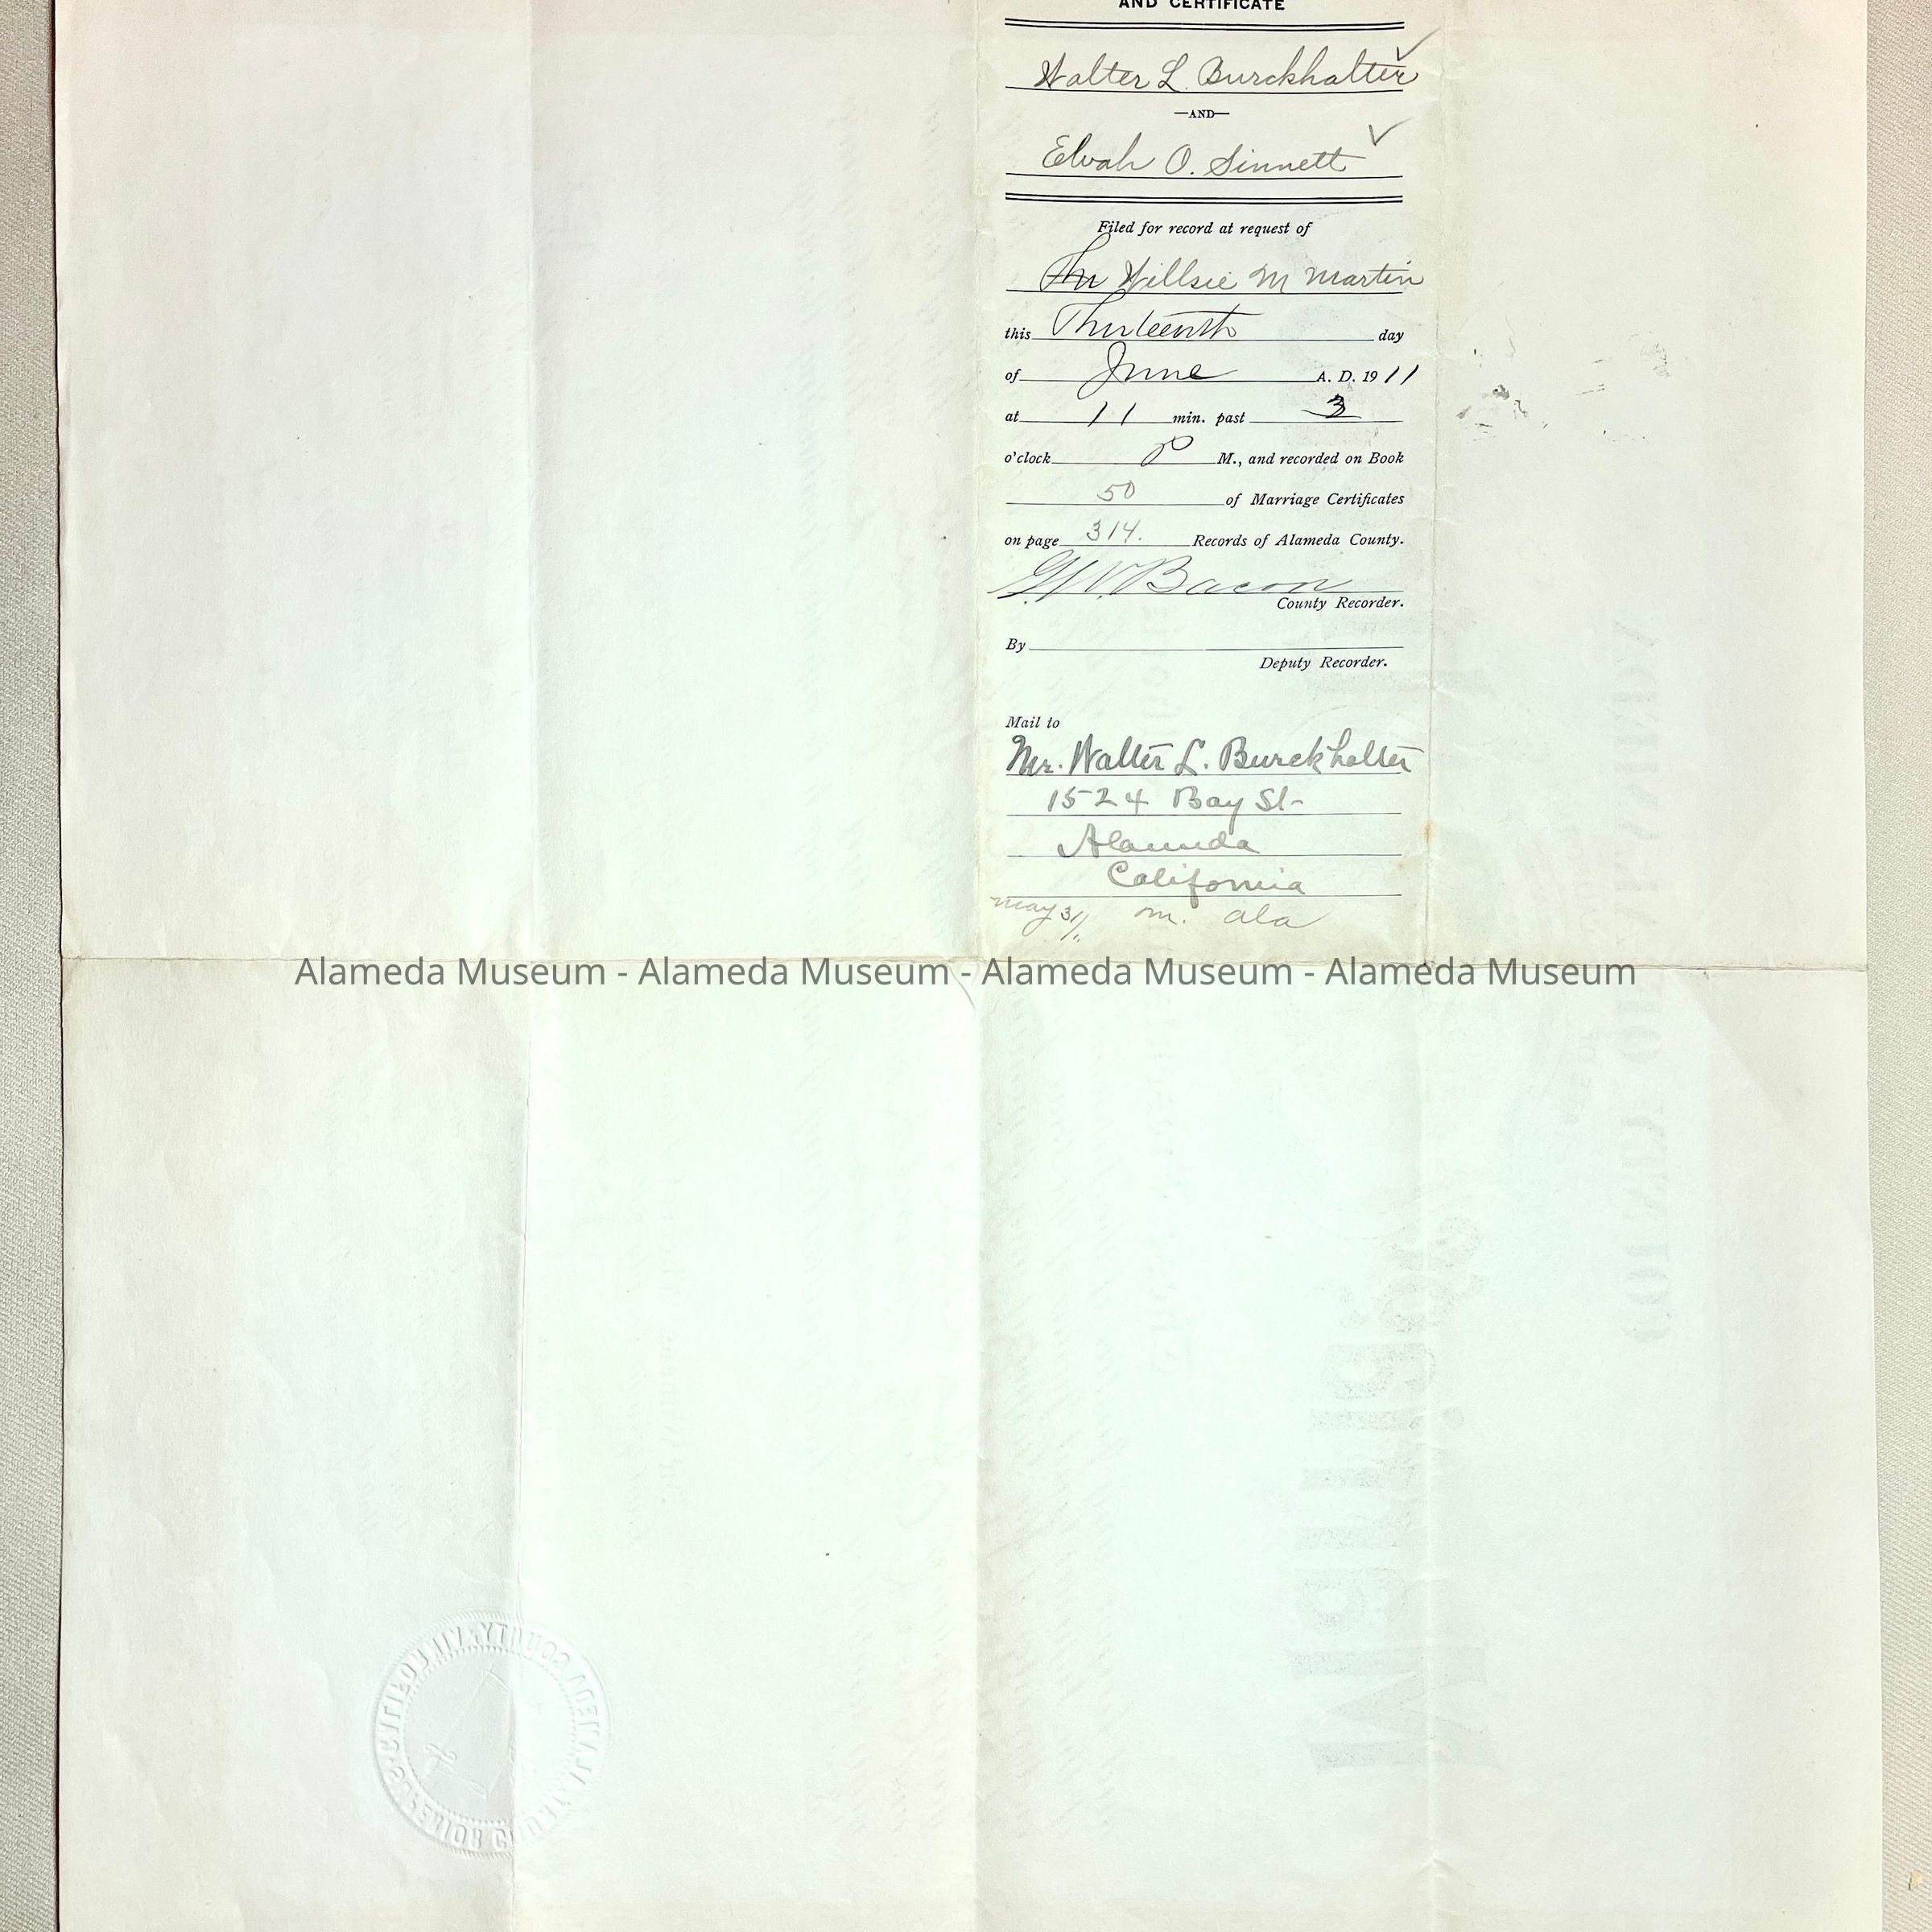 AND CERTIFICATE
Walter L. Burckhalter
—AND—
Elvah O. Sinnett
Filed for record at request of
Willsie M Martin
this Thirteenth day
of June A. D. 1911
at 11 min. past 3
o'clock P M., and recorded on Book
50 of Marriage Certificates
on page 314. Records of Alameda County.
G. W. Bacon
County Recorder.
By
Deputy Recorder.
Mail to
Mr. Walter L. Burckhalter
1524 Bay St
Alameda
California
may 31/11. m. ala
Alameda Museum - Alameda Museum - Alameda Museum - Alameda Museum
SUPERIOR COURT ALAMEDA COUNTY CALIFORNIA
Marriage